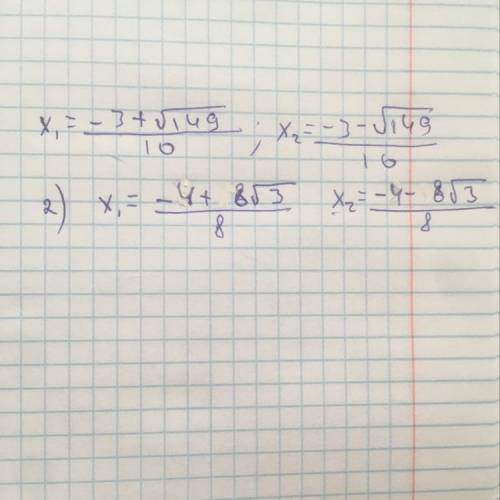 x₁ = (-3+√149)/10 ; x₂ = (-3-√149)/10
2) x₁ = (-4+8√3)/8 x₂ = (-4-8√3)/8